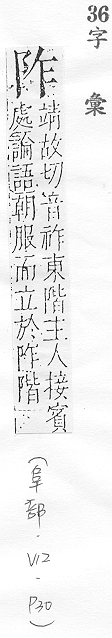 36
字彙
阼
靖故切音祚東階主人接賓
處論語朝服而立於阼階
(阜部-V12-P30)